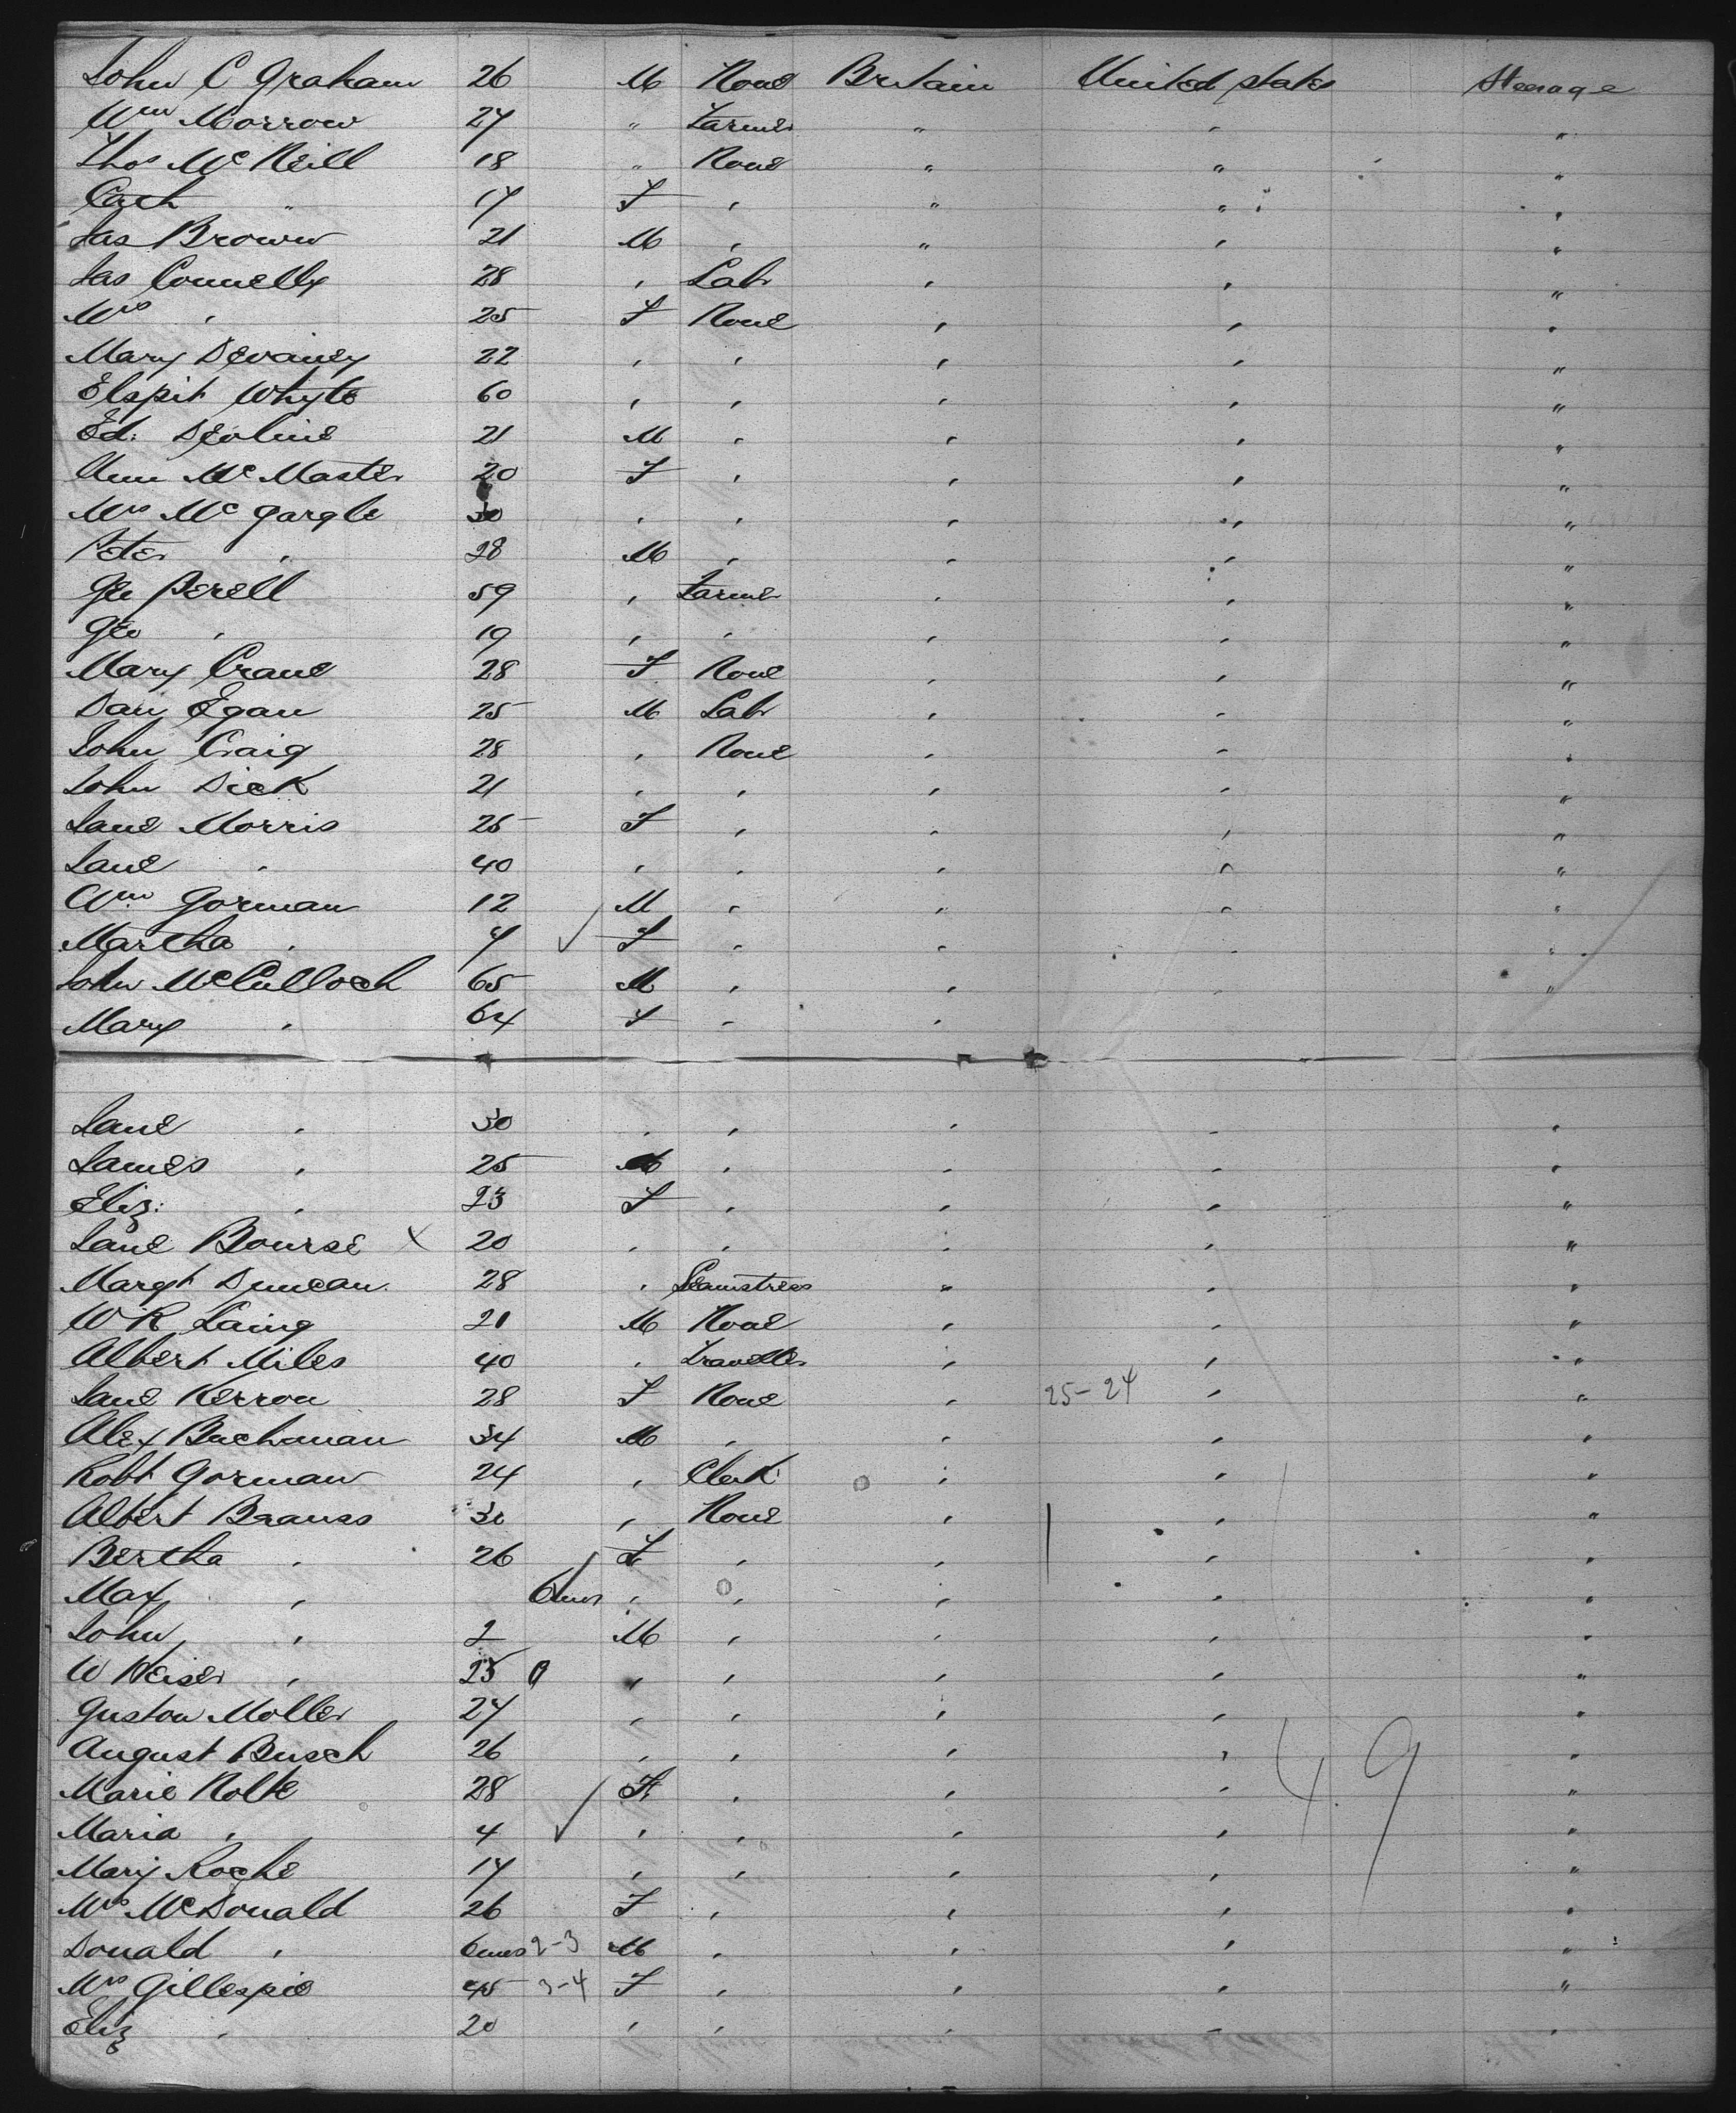 John C Graham 26 M None Britain United States Steerage
Wm Morrow 27 " Farmer " " "
Thos McNeill 18 " None " " "
Cath " 17 F " " " "
Jas Brown 21 M " " " "
Jas Connelly 28 " Labr " " "
Mrs " 25 F None " " "
Mary Devaney 22 " " " " "
Elspit Whyte 60 " " " " "
Ed: Devline 21 M " " " "
Ann McMaster 20 F " " " "
Mrs McGargle 30 " " " " "
Peter " 28 M " " " "
Geo Perell 59 " Farmer " " "
Geo " 19 " " " " "
Mary Crane 28 F None " " "
Dan Egan 25 M Labr " " "
John Craig 28 " None " " "
John Dick 21 " " " " "
Jane Morris 25 F " " " "
Jane " 40 " " " " "
Wm Gorman 12 M " " " "
Martha " 7 F " " " "
John McCulloch 65 M " " " "
Mary " 64 F " "
Jane " 30 " " " " "
James " 25 M " " " "
Eliz: " 23 F " " " "
Jane Bourse x 20 " " " " "
Margt Duncan 28 " Seamstress " " "
W R Laing 21 M None " " "
Albert Miles 40 " Traveller " " "
Jane Kerron 28 F None " 25-24 " "
Alex Buchanan 34 M " " " "
Robt Gorman 24 " Clerk " " "
Albert Brauss 30 " None " " "
Bertha " 26 F " " " "
Max " 6mos " " " " "
John " 2 M " " " "
W Weiser " 25 " " " " "
Gustow Moller 27 " " " " "
August Busch 26 " " " " "
Marie Nolte 28 F " " " "
Maria " 4 " " " " "
49
Mary Roche 17 " " " " "
Mrs McDonald 26 F " " " "
Donald " 6mos 2-3 M " " " "
Mrs Gillespie 45 3-4 F " " " "
Eliz " 20 " " " " "